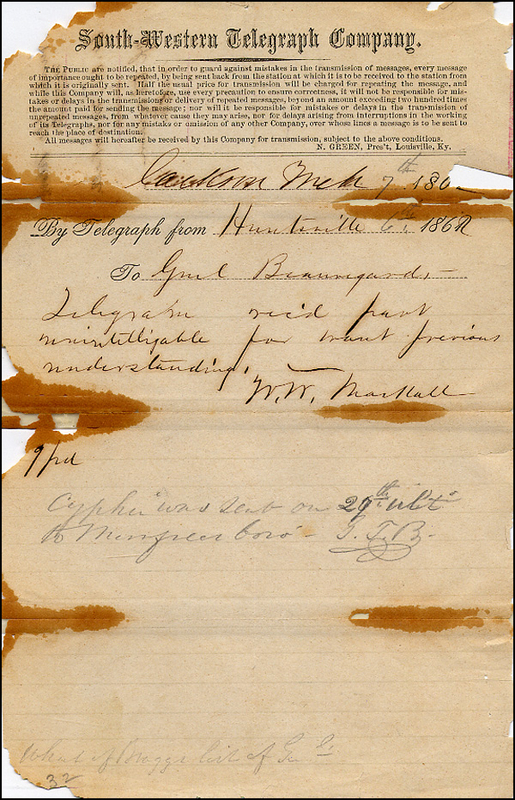 South-Western Telegraph Company.
THE PUBLIC are notified, that in order to guard against mistakes in the transmission of messages, every message
of importance ought to be repeated, by being sent back from the station at which it is to be received to the station from
which it is originally sent. Half the usual price for transmission will be charged for repeating the message, and
while this Company will, as heretofore, use every precaution to ensure correctness, it will not be responsible for mis-
takes or delays in the transmission or delivery of repeated messages, beyond an amount exceeding two hundred times
the amount paid for sending the message; nor will it be responsible for mistakes or delays in the transmission of
unrepeated messages, from whatever cause they may arise, nor for delays arising from interruptions in the working
of its Telegraphs, nor for any mistake or omission of any other Company, over whose lines a message is to be sent to
reach the place of destination.
All messages will hereafter be received by this Company for transmission, subject to the above conditions.
N. GREEN, Pres't, Louisville, Ky.
Mch 7th 186
By Telegraph from Huntsville 6th 1862
To Genl Beauregard
Telegram rec'd part
unintelligable for want previous
understanding.
W. W. Mackall
9 pd
Cypher was sent on 29th ulto
to Murfreesboro - G. T. B.
What of Bragg
32